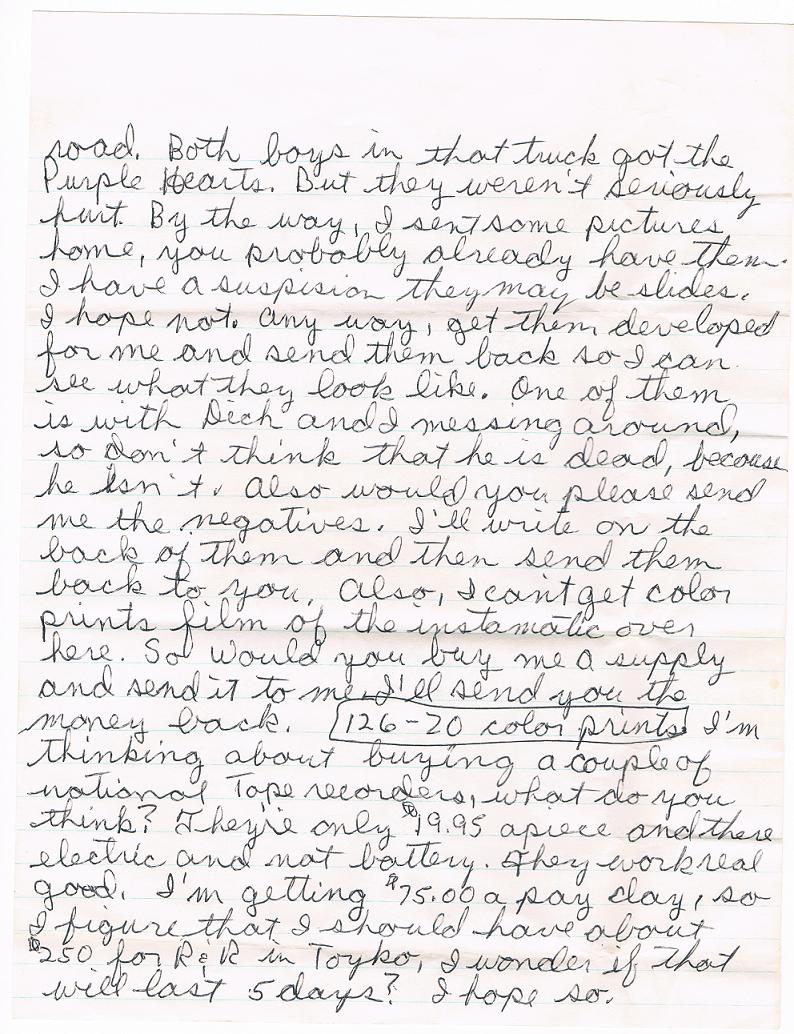 road. Both boys in that truck got the
Purple Hearts. But they weren't seriously
hurt. By the way, I sent some pictures
home, you probably already have them.
I have a suspision they may be slides.
I hope not. Any way, get them developed
for me and send them back so I can
see what they look like. One of them
is with Dick and I messing around,
so don't think that he is dead, because
he isn't. Also would you please send
me the negatives. I'll write on the
back of them and then send them
back to you. Also, I can't get color
prints film of the instamatic over
here. So would you buy me a supply
and send it to me. I'll send you the
money back. 126-20 color prints. I'm
thinking about buying a couple of
national Tape recorders, what do you
think? They're only $19.95 apiece and there
electric and not battery. They work real
good. I'm getting $75.00 a pay day, so
I figure that I should have about
$250 for R&R in Toyko, I wonder if that
will last 5 days? I hope so.